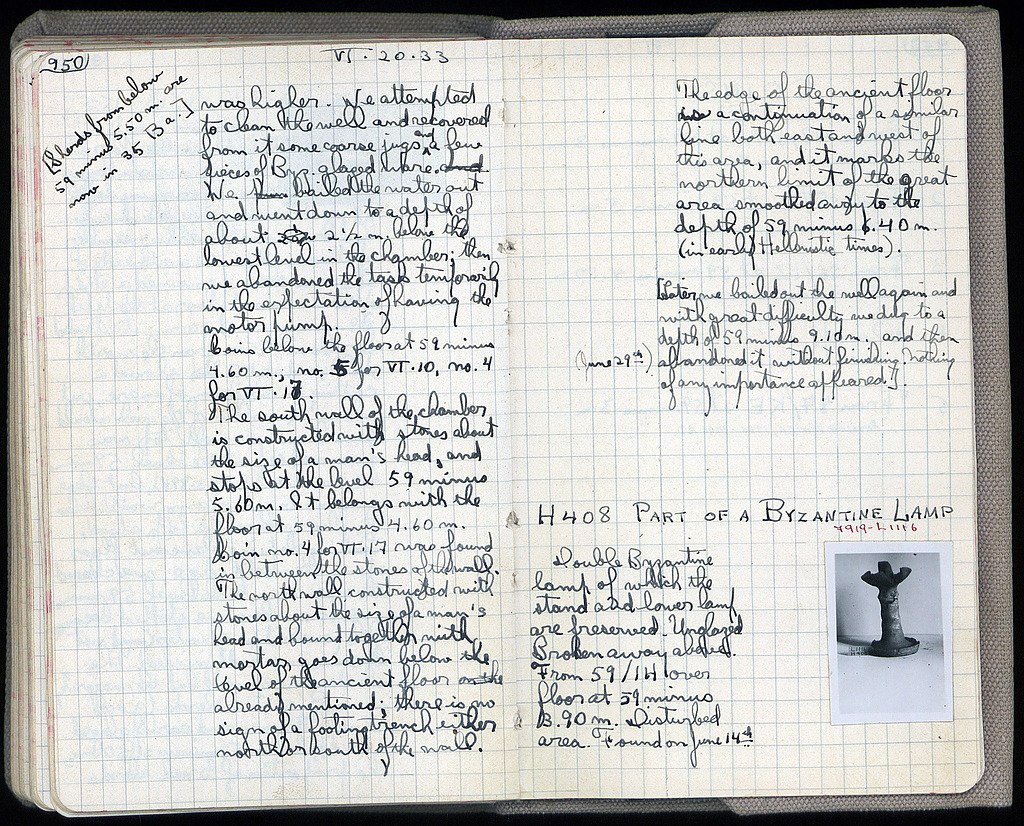 950
VI · 20 · 33
[Sherds from below
59 minus 5.50 m. are
now in 35 Ba.]
was higher. We attempted
to clean the well and recovered
from it some coarse jugs and a few
pieces of Byz. glazed ware.
We bailed the water out
and went down to a depth of
about 2 1/2 m. below the
lowest level in the chamber; then
we abandoned the task temporarily
in the expectation of having the
motor pump.
Coins below the floor at 59 minus
4.60 m., no. 5 for VI·10, no. 4
for VI·17.
The south wall of the chamber
is constructed with stones about
the size of a man's head, and
stops at the level 59 minus
5.60 m. It belongs with the
floor at 59 minus 4.60 m.
Coin no. 4 for VI·17 was found
in between the stones of the wall.
The north wall constructed with
stones about the size of a man's
head and bound together with
mortar goes down below the
level of the ancient floor
already mentioned; there is no
sign of a footing trench either
north or south of the wall.
The edge of the ancient floor
is a continuation of a similar
line both east and west of
this area, and it marks the
northern limit of the great
area smoothed away to the
depth of 59 minus 6.40 m.
(in early Hellenistic times).
[Later we bailed out the well again and
with great difficulty we dug to a
depth of 59 minus 9.10 m. and then
(June 29th) abandoned it without finishing. Nothing
of any importance appeared.].
H408 PART OF A BYZANTINE LAMP
7919-L1116
Double Byzantine
lamp of which the
stand and lower lamp
are preserved. Unglazed
Broken away above.
From 59/ΙΗ over
floor at 59 minus
3.90 m. Disturbed
area. Found on June 14th